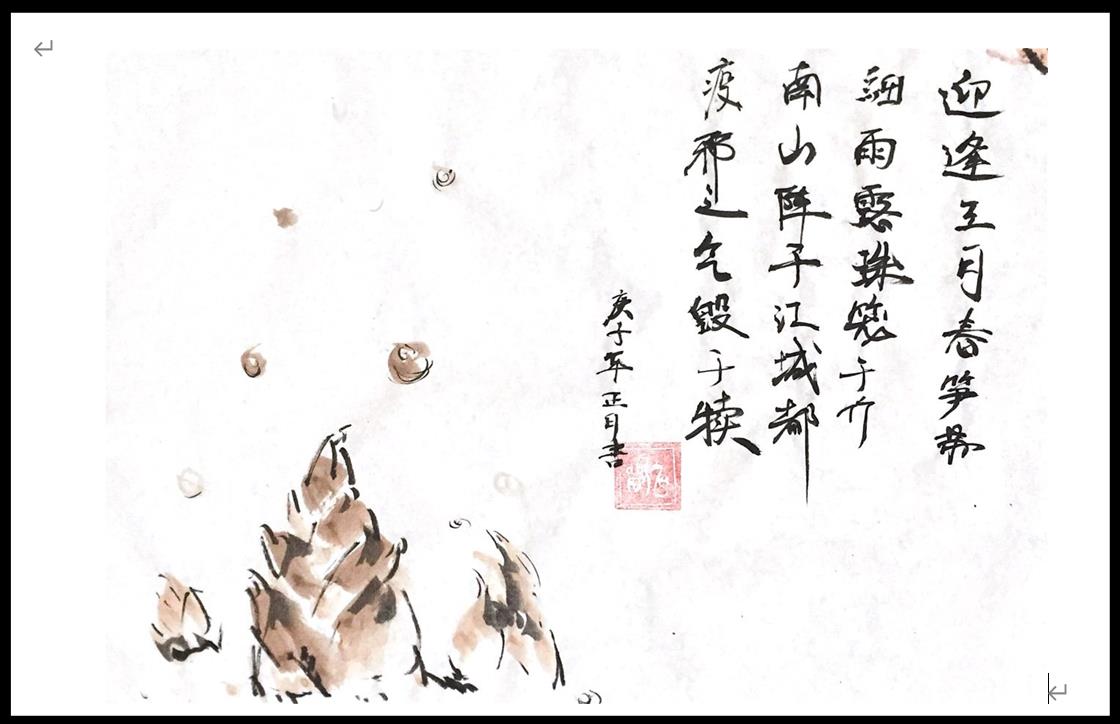 迎逢三月春笋
细雨露珠于竹
南山阵子江城都
疫邪之气毁于犊
庚子年正月